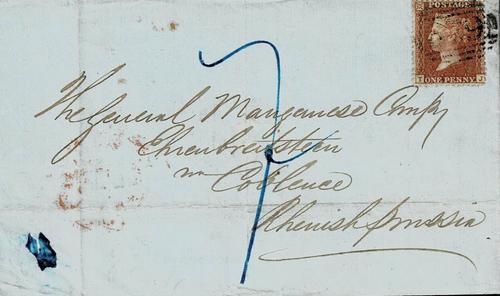 POSTAGE
ONE PENNY
T J
The General Manganese Compy
Ehrenbreitstein
nr Coblence
Rhenish Prussia
7